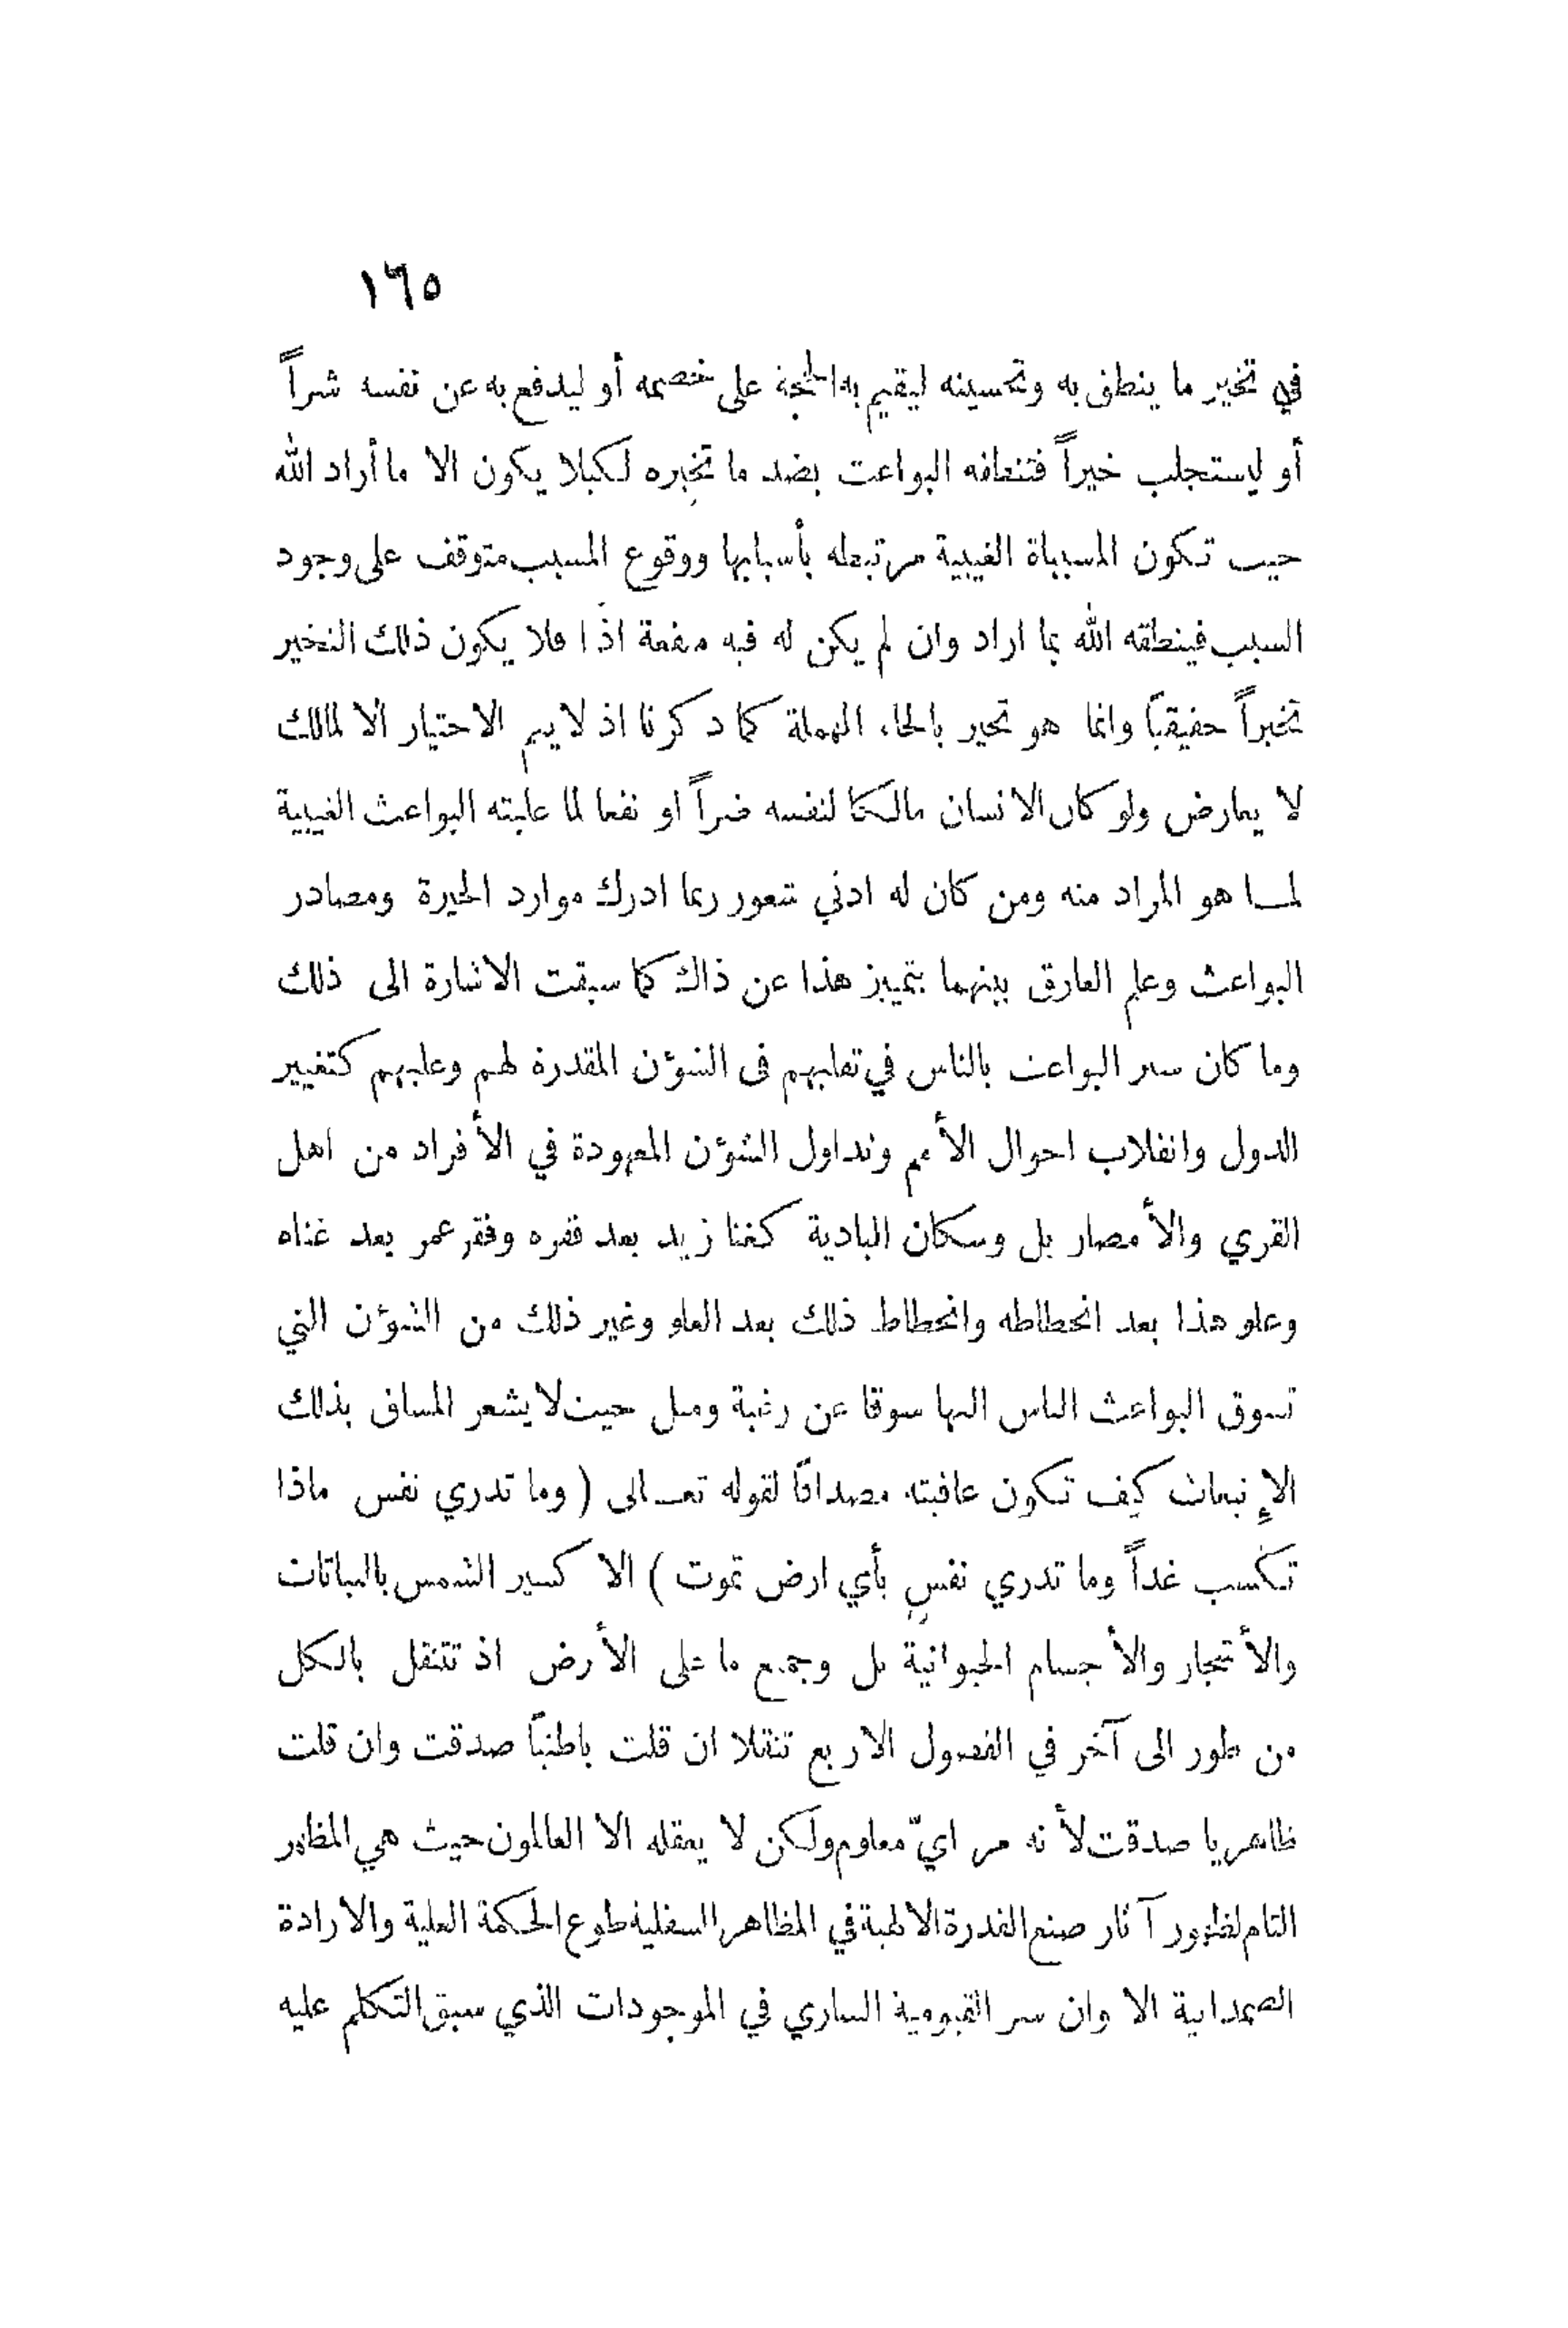 ١٦٥
في تخير ما ينطق به وتحسينه ليقيم به الحجة على خصمه أو ليدفع به عن نفسه شراً
أو ليستجلب خيراً فتنطقه البواعث بضد ما تخيره لكيلا يكون الا ما أراد الله
حيث تكون المسبباة الغيبية مرتبطه بأسبابها ووقوع المسبب متوقف على وجود
السبب فينطقه الله بما اراد وان لم يكن له فيه منفعة اذا فلا يكون ذلك التخير
تخيراً حقيقياً وانما هو تحير بالحاء المهملة كما ذكرنا اذ لا يتم الاختيار الا لمالك
لا يعارض ولو كان الانسان مالكا لنفسه ضراً او نفعا لما غلبته البواعث الغيبية
لما هو المراد منه ومن كان له ادني شعور ربما ادرك موارد الحيرة ومصادر
البواعث وعلم الفارق بينهما بتمييز هذا عن ذاك كما سبقت الاشارة الى ذلك
وما كان سير البواعث بالناس في تقلبهم فى الشؤن المقدرة لهم وعليهم كتغيير
الدول وانقلاب احوال الأمم وتداول الشؤن المعهودة في الأفراد من اهل
القري والأمصار بل وسكان البادية كغنا زيد بعد فقره وفقر عمر بعد غناه
وعلو هذا بعد انحطاطه وانحطاط ذلك بعد العلو وغير ذلك من الشؤن التي
تسوق البواعث الناس اليها سوقا عن رغبة وميل حيث لا يشعر المساق بذلك
الإنبعاث كيف تكون عاقبته مصداقا لقوله تعالى ( وما تدري نفس ماذا
تكسب غداً وما تدري نفسٍ بأي ارض تموت ) الا كسير الشمس بالنباتات
والأشجار والأجسام الحيوانية بل وجميع ما على الأرض اذ تتنقل بالكل
من طور الى آخر في الفصول الاربع تنقلا ان قلت باطنياً صدقت وان قلت
ظاهريا صدقت لأنه مرايّ معلوم ولكن لا يعقله الا العالمون حيث هي المظهر
التام لظهور آثار صنع القدرة الالهية في المظاهر السفلية طوع الحكمة العلية والارادة
الصمدانية الا وان سر القيومية الساري في الموجودات الذي سبق التكلم عليه